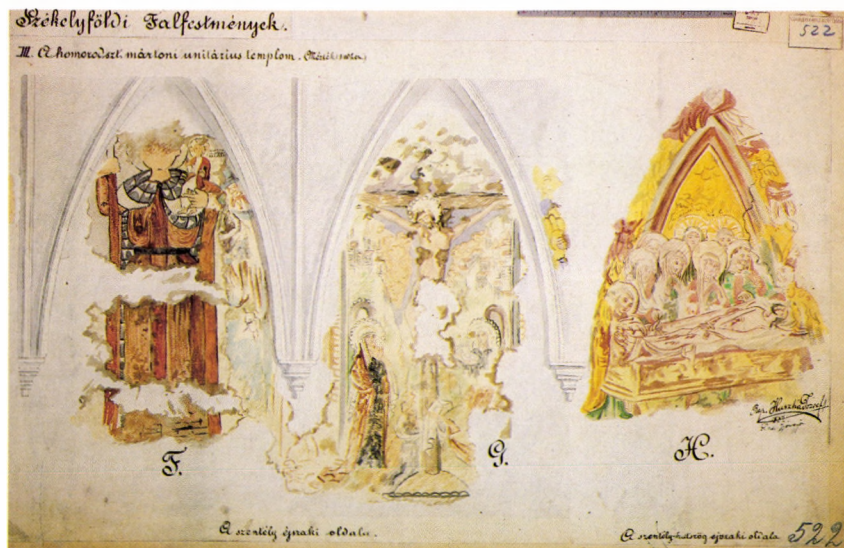 Székelyföldi Falfestmények.
III. A homoródszt. mártoni unitárius templom.
522
F.
G.
H.
Huszka József
A szentély éjszaki oldala.
A szentély éjszaki oldala
522